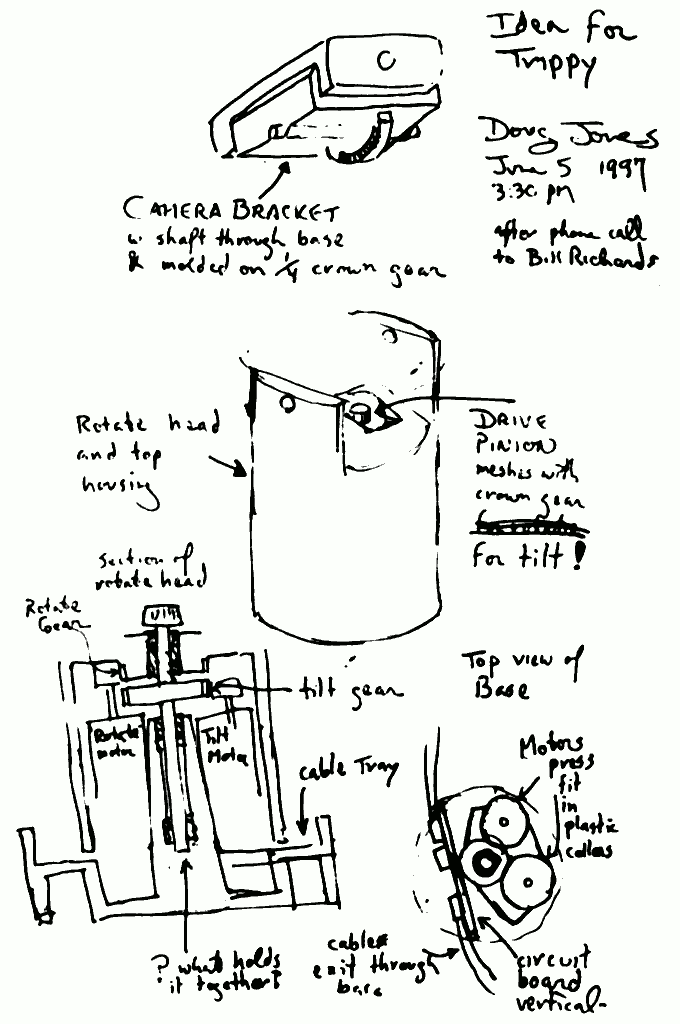 Idea for
Trippy
Doug Jones
June 5 1997
3:30 pm
after phone call
to Bill Richards
CAMERA BRACKET
w shaft through base
& molded on 1/4 crown gear
Rotate head
and top
housing
DRIVE
PINION
meshes with
crown gear
for tilt!
section of
rotate head
Rotate
Gear
tilt gear
Rotate
motor
Tilt
Motor
cable Tray
? what holds
it together?
Top view of
Base
Motors
press
fit
in
plastic
collars
cables
exit through
base
circuit
board
vertical